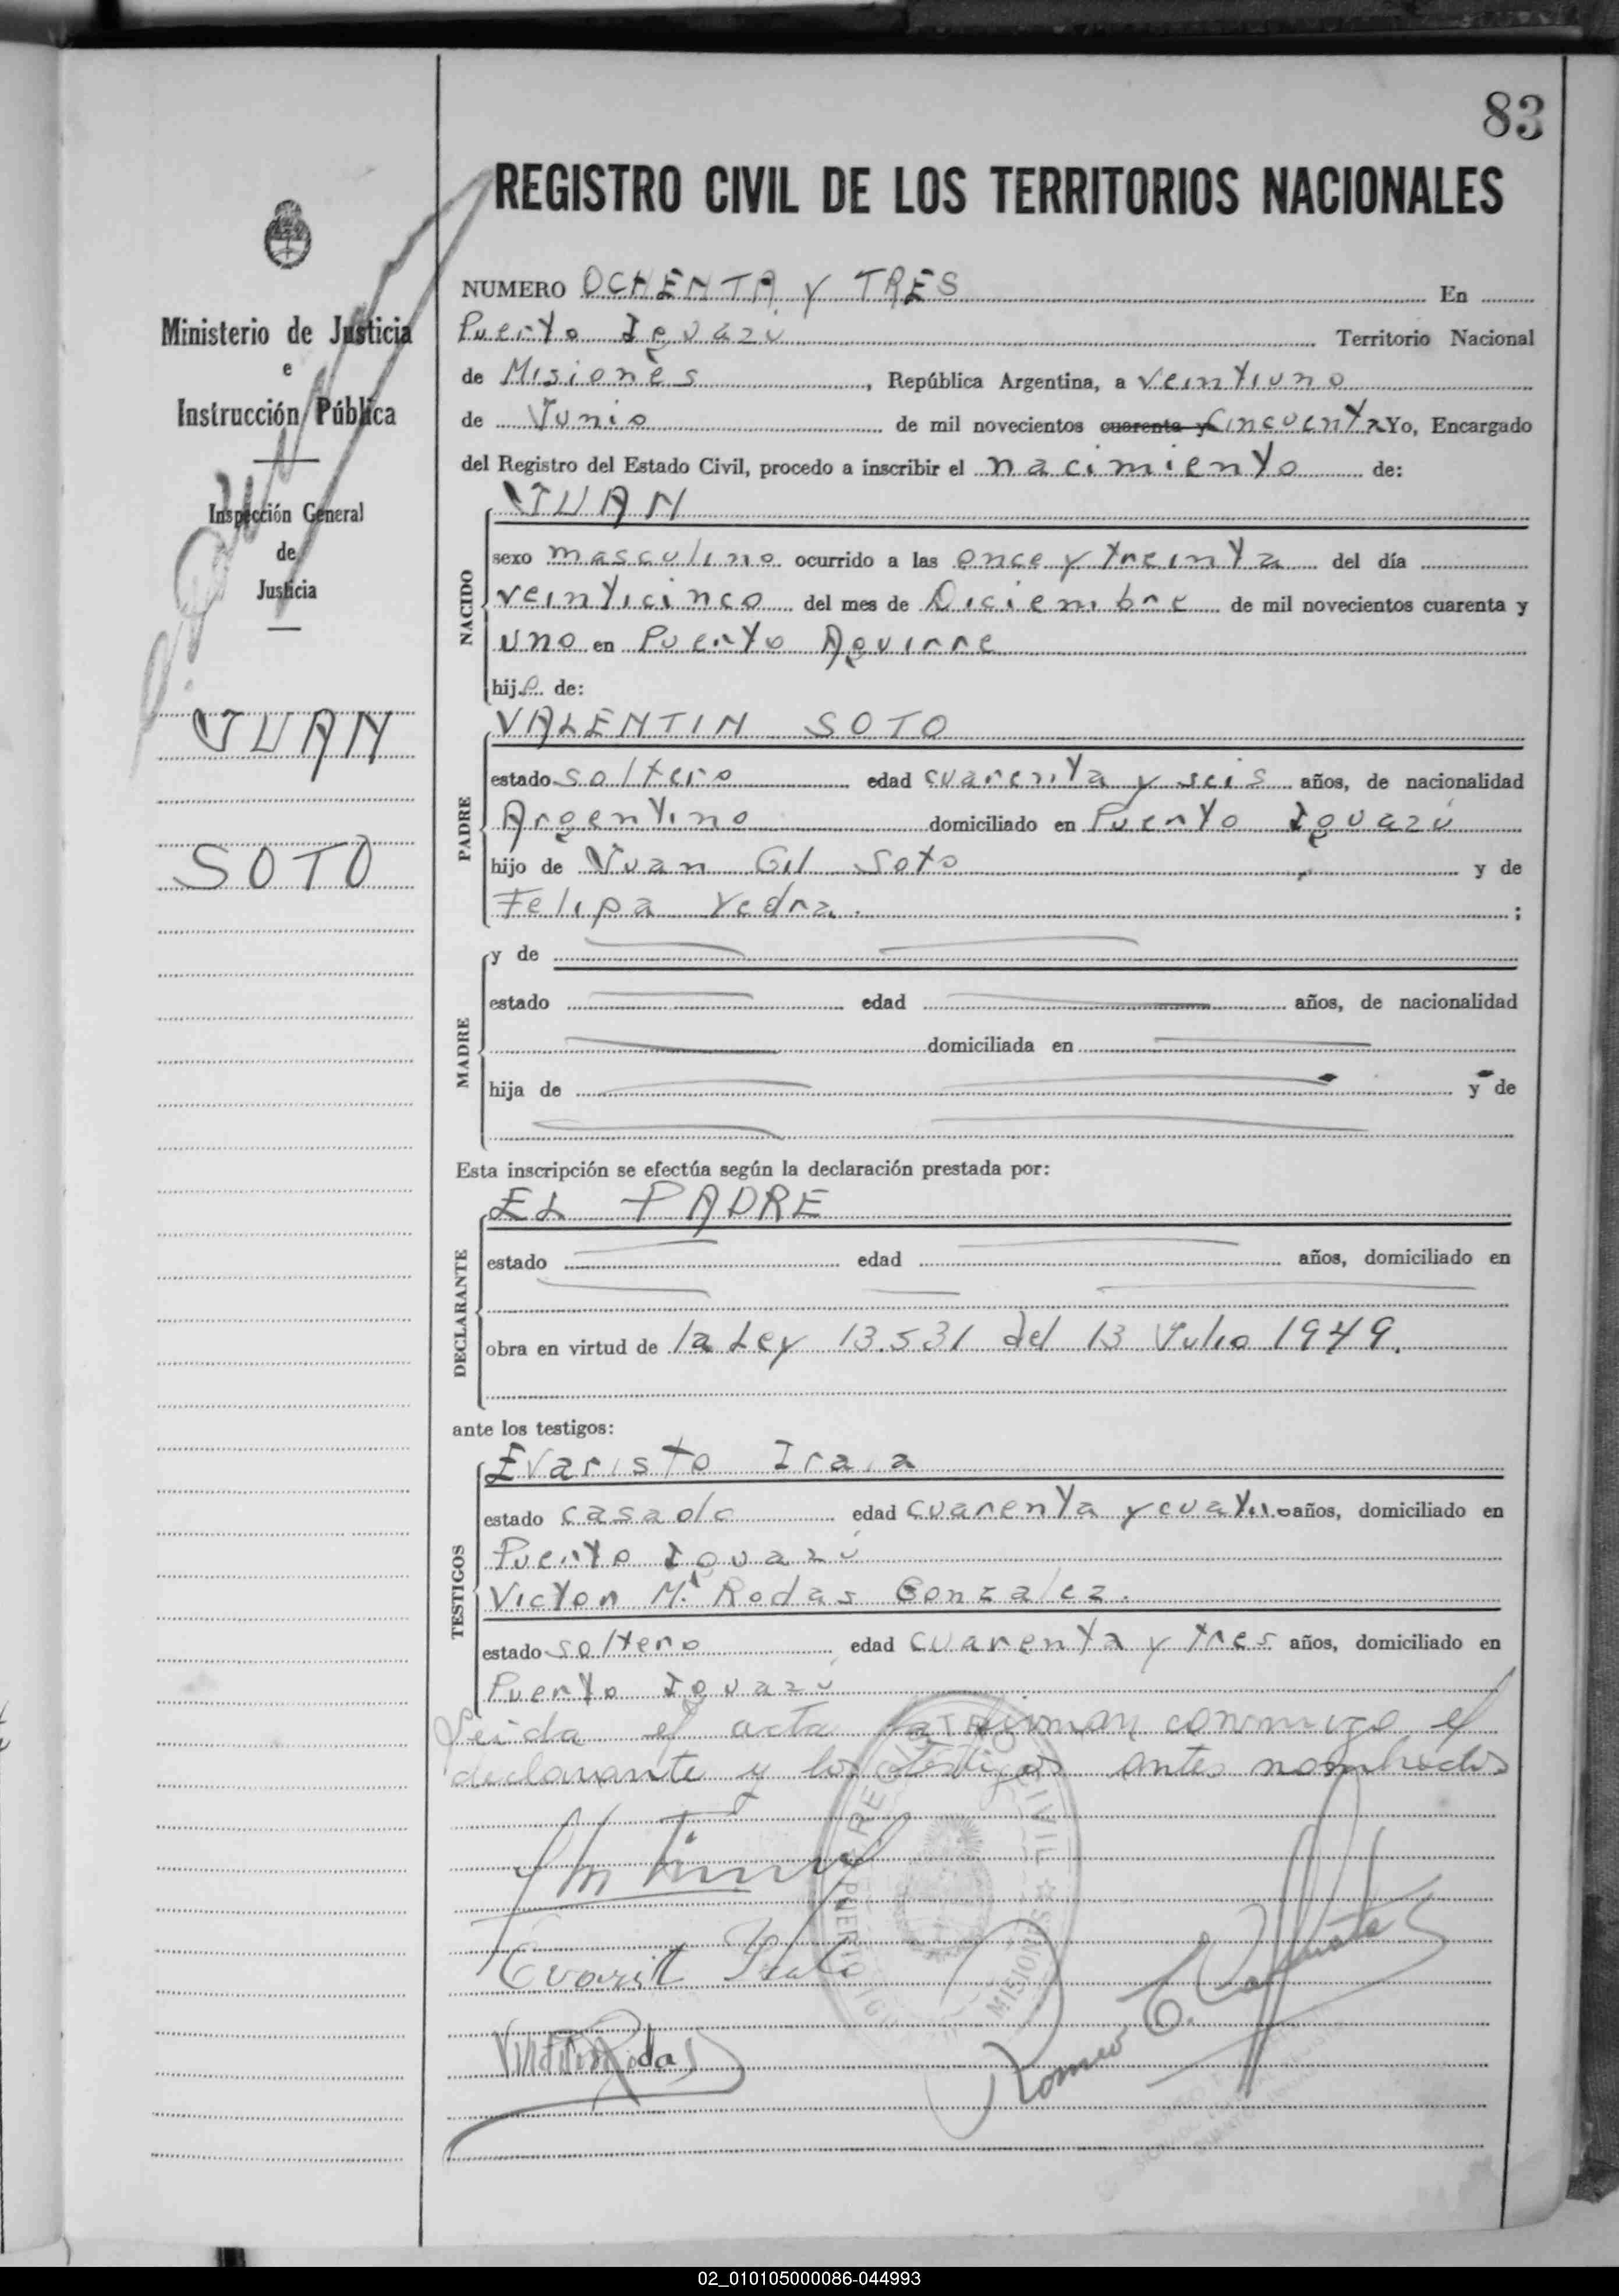 83
REGISTRO CIVIL DE LOS TERRITORIOS NACIONALES
Ministerio de Justicia
e
Instrucción Pública
Inspección General
de
Justicia
JUAN
SOTO
NUMERO OCHENTA Y TRES En
Puerto Iguazú Territorio Nacional
de Misiones, República Argentina, a veintiuno
de Junio de mil novecientos cuarenta y Cincuenta Yo, Encargado
del Registro del Estado Civil, procedo a inscribir el nacimiento de:
NACIDO
JUAN
sexo masculino ocurrido a las once y treinta del día
veinticinco del mes de Diciembre de mil novecientos cuarenta y
uno en Puerto Aguirre
hijo de:
PADRE
VALENTIN SOTO
estado soltero edad cuarenta y seis años, de nacionalidad
Argentino domiciliado en Puerto Iguazú
hijo de Juan Gil Soto y de
Felipa Yedra. ;
MADRE
y de
estado edad años, de nacionalidad
domiciliada en
hija de y de
Esta inscripción se efectúa según la declaración prestada por:
DECLARANTE
EL PADRE
estado edad años, domiciliado en
obra en virtud de la Ley 13.531 del 13 Julio 1949.
ante los testigos:
TESTIGOS
Evaristo Irala
estado casado edad cuarenta y cuatro años, domiciliado en
Puerto Iguazú
Victor M. Rodas Gonzalez.
estado soltero edad cuarenta y tres años, domiciliado en
Puerto Iguazú
Leida el acta la firman conmigo el
declarante y los testigos antes nombrados
REGISTRO CIVIL
MISIONES
Romeo C.
02_010105000086-044993